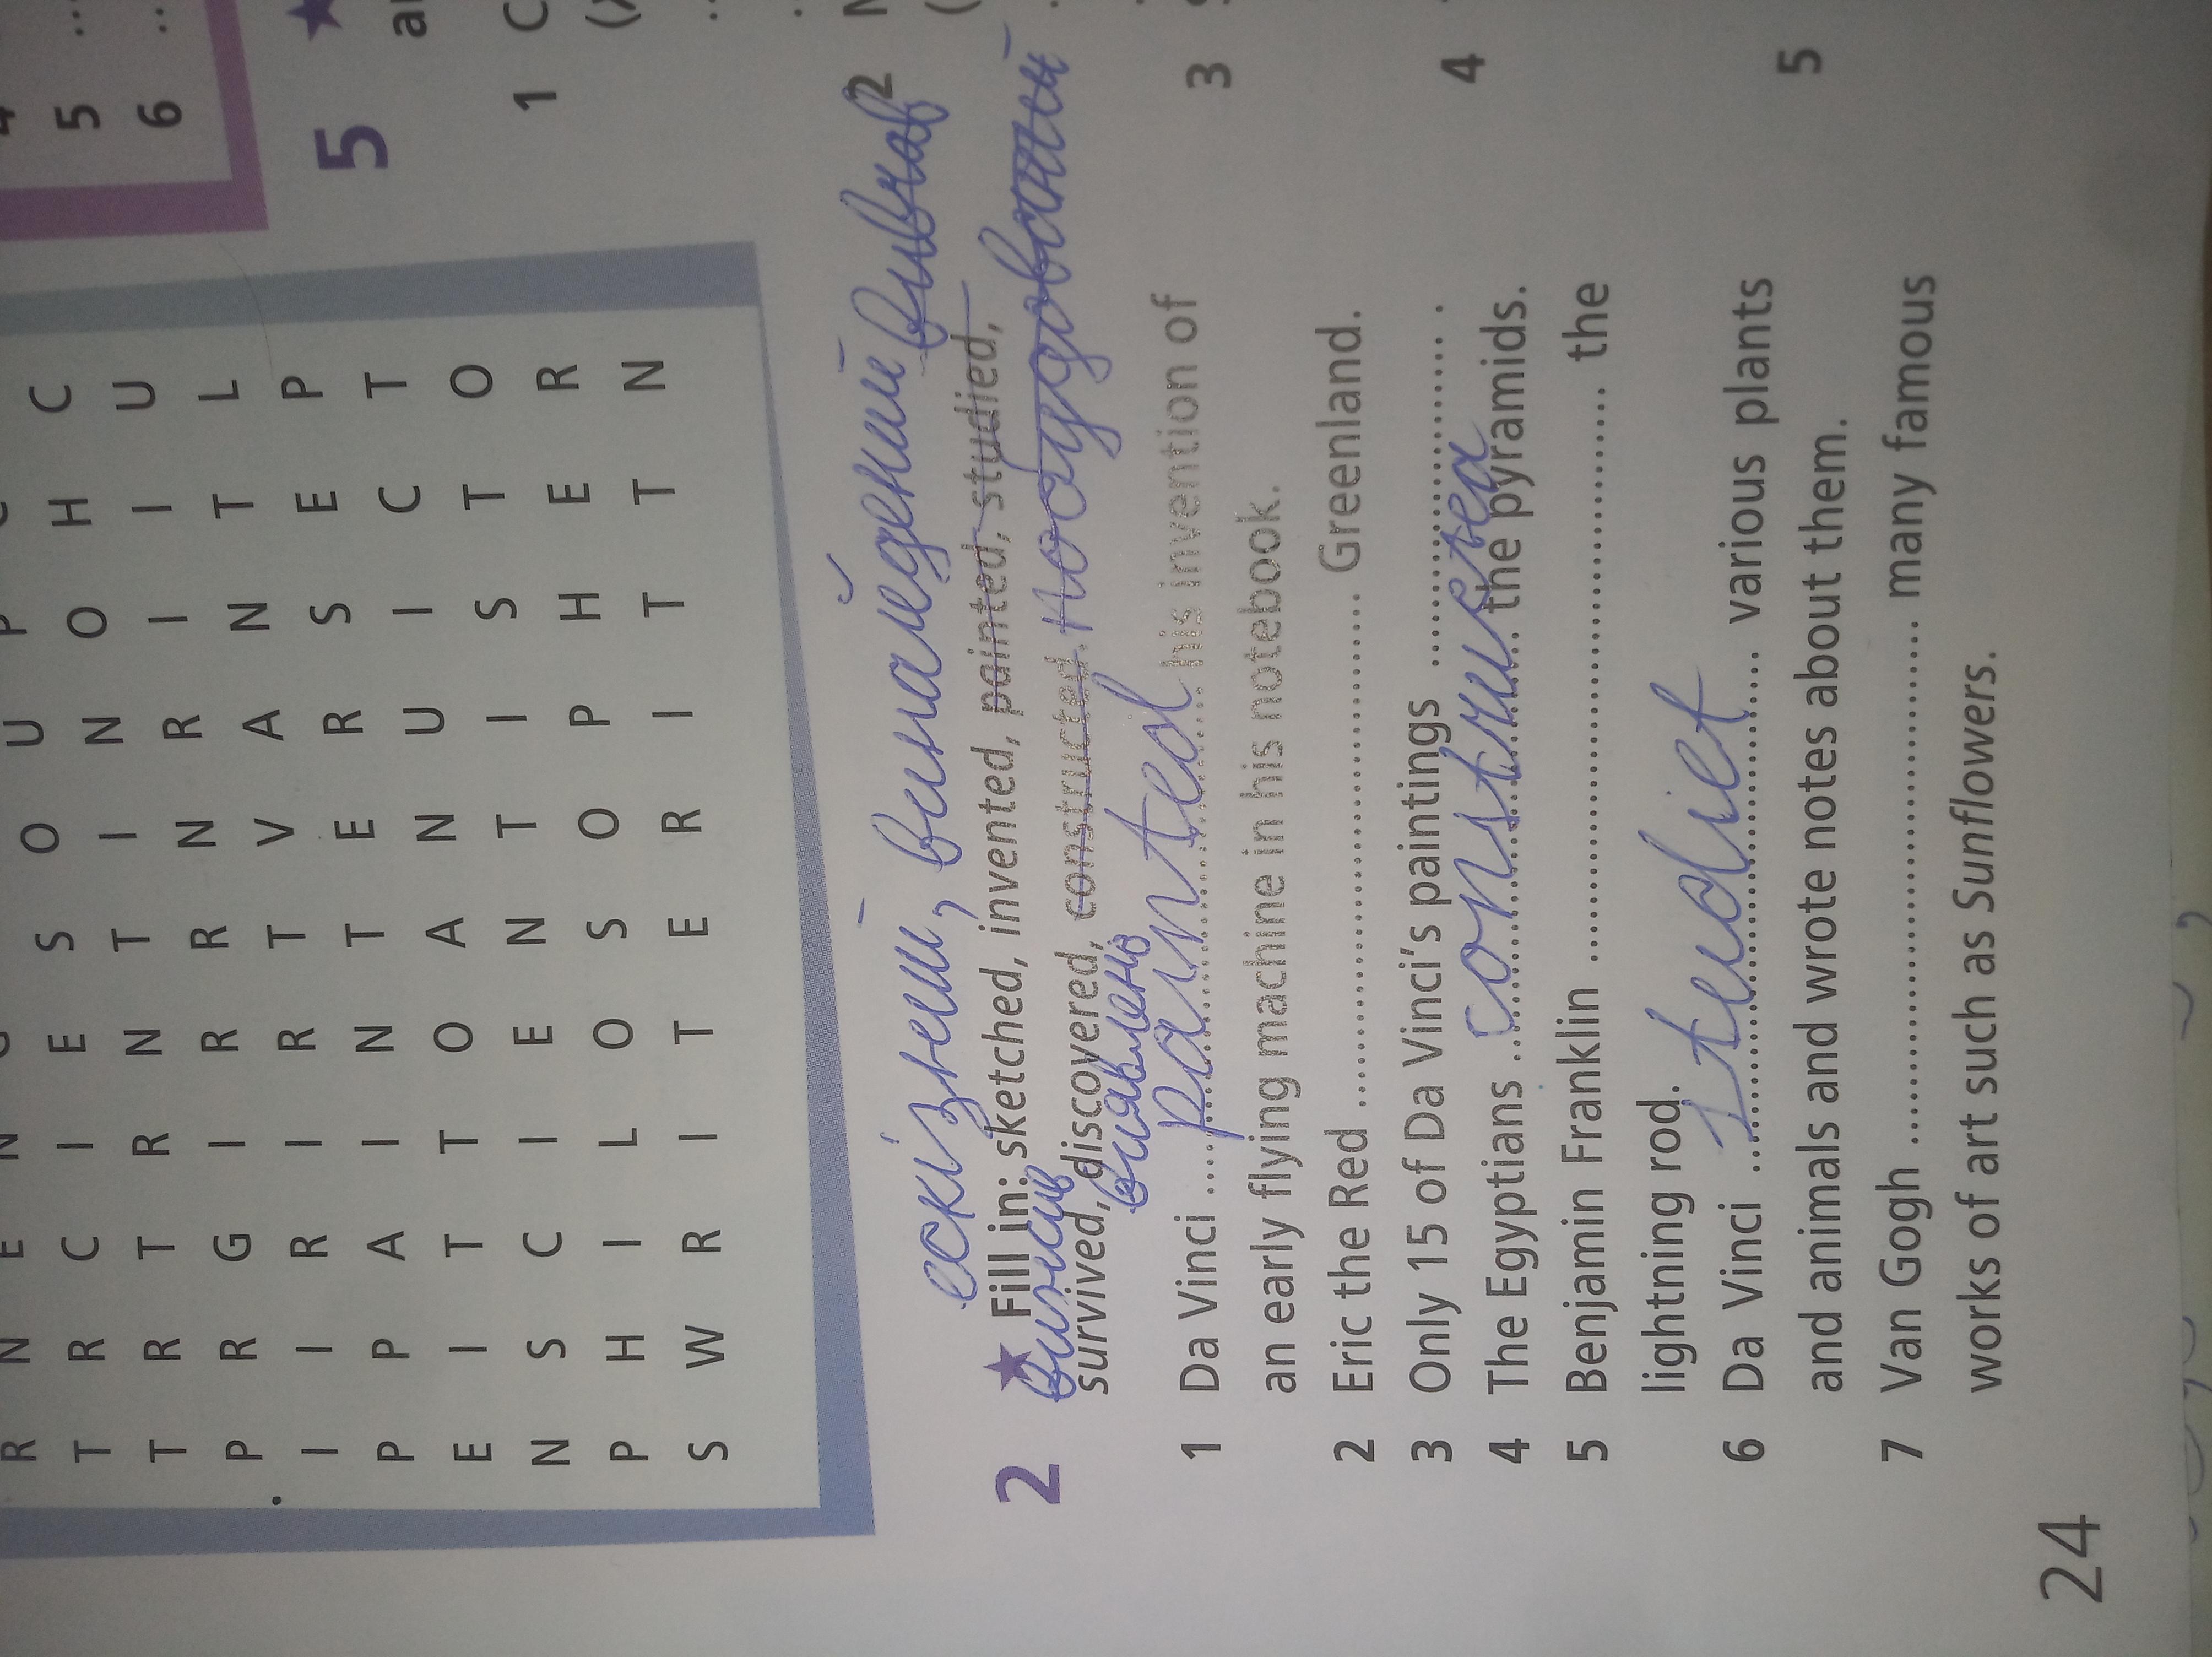 R N E N G O U P C
T R C I E S O U O H C
T R T R N T I N O I U
P R G I R R N R I T L
I I R I R T V A N E P
P P A I N T E R S C T
E I T T O A N U I T O
N S C I E N T I S E R
P H I L O S O P H T N
S W R I T E R I T
4
5 ..
6 ..
5
1 C
2
3
4
5
ескізний, винайдений вивчав
2 Fill in: sketched, invented, painted, studied,
винесив
survived, discovered, constructed. побудований
виявлень
1 Da Vinci .... painted .. his invention of
an early flying machine in his notebook.
2 Eric the Red .............................. Greenland.
3 Only 15 of Da Vinci's paintings .................. .
4 The Egyptians .. construsted .. the pyramids.
5 Benjamin Franklin .............................. the
lightning rod.
6 Da Vinci .. studiet .. various plants
and animals and wrote notes about them.
7 Van Gogh .............................. many famous
works of art such as Sunflowers.
24